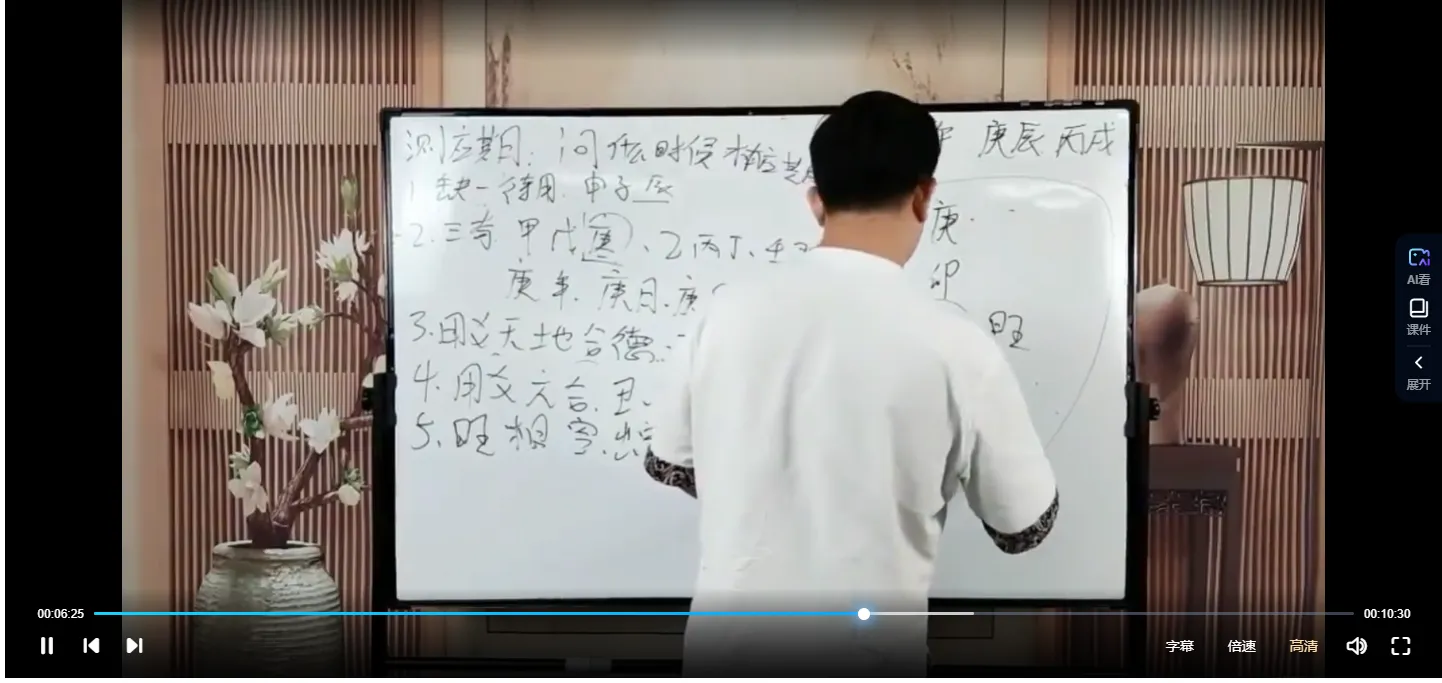 测应期：问什么时候
年 庚辰 丙戌
1 缺一待用. 申子辰
庚.
2.三奇 甲戊庚、乙丙丁、壬
卯
庚年. 庚日.庚
旺
3.用爻天地合德.
4.用爻六合. 丑、
5、旺相
AI看
课件
展开
00:06:25
00:10:30
字幕
倍速
高清